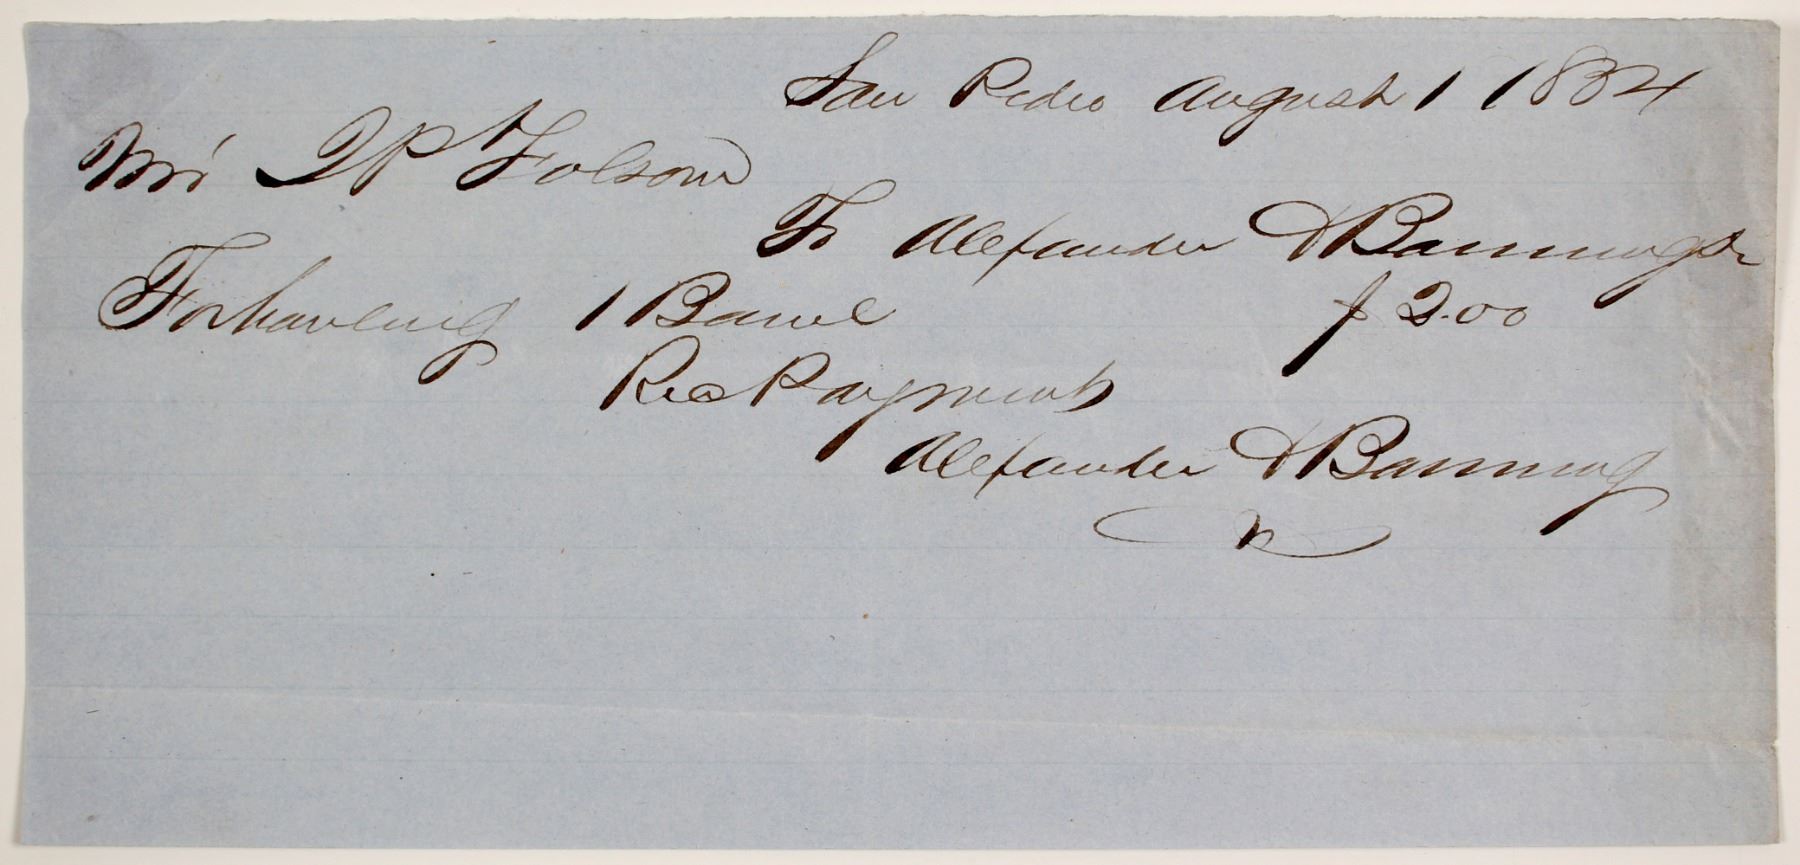 San Pedro August 1 1854
Mr J P Folsom
To Alexander & Banning Dr
For hauling 1 Barrel $ 2.00
Rec Payment
Alexander & Banning